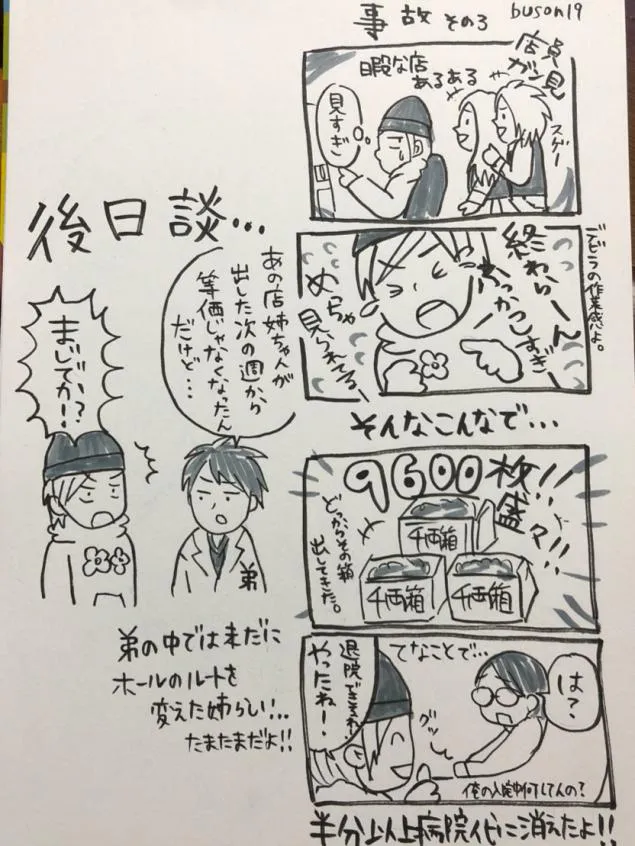 事故 その3
buson19
店員
ガン見
暇な店
あるある
スゲー
見すぎ
デビラの作業感よ。
終わらーん
めっちゃ
見られてる
そんなこんなで…
9600枚!!
盛々!!
どっからその箱
出してきた。
千両箱
千両箱
千両箱
てなことで…
は?
退院できそれ?
やったねー!
グッ
俺の入院中何してんの?
半分以上病院代に消えたよ!!
後日談…
あの店姉ちゃんが
出した次の週から
等価じゃなくなったん
だけど…
まじでか!?
弟
弟の中では未だに
ホールのルートを
変えた姉らしい…
たまたまだよ!!